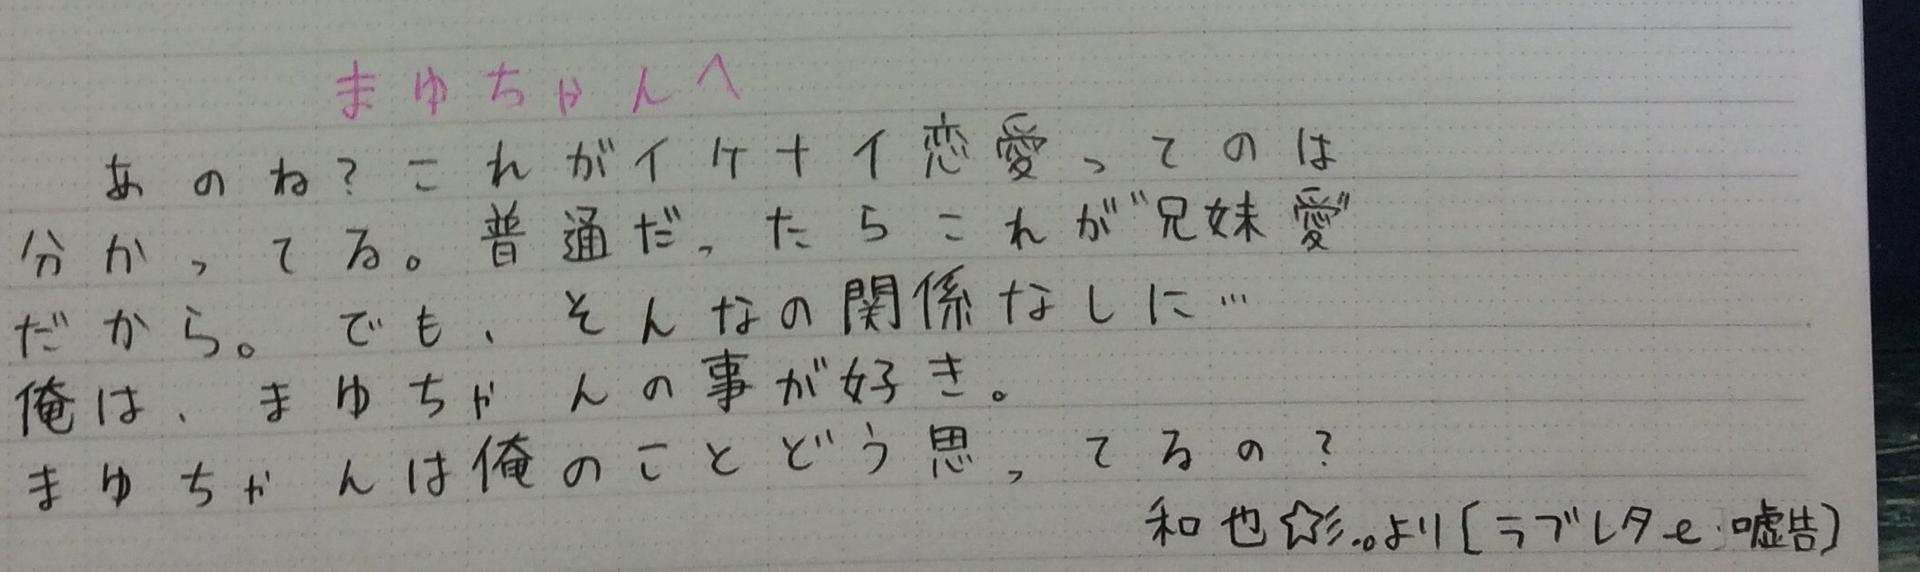 まゆちゃんへ
あのね?これがイケナイ恋愛ってのは
分かってる。普通だったらこれが"兄妹愛"
だから。でも、そんなの関係なしに…
俺は、まゆちゃんの事が好き。
まゆちゃんは俺のことどう思ってるの?
和也☆彡.。より[ラブレタe 嘘告)